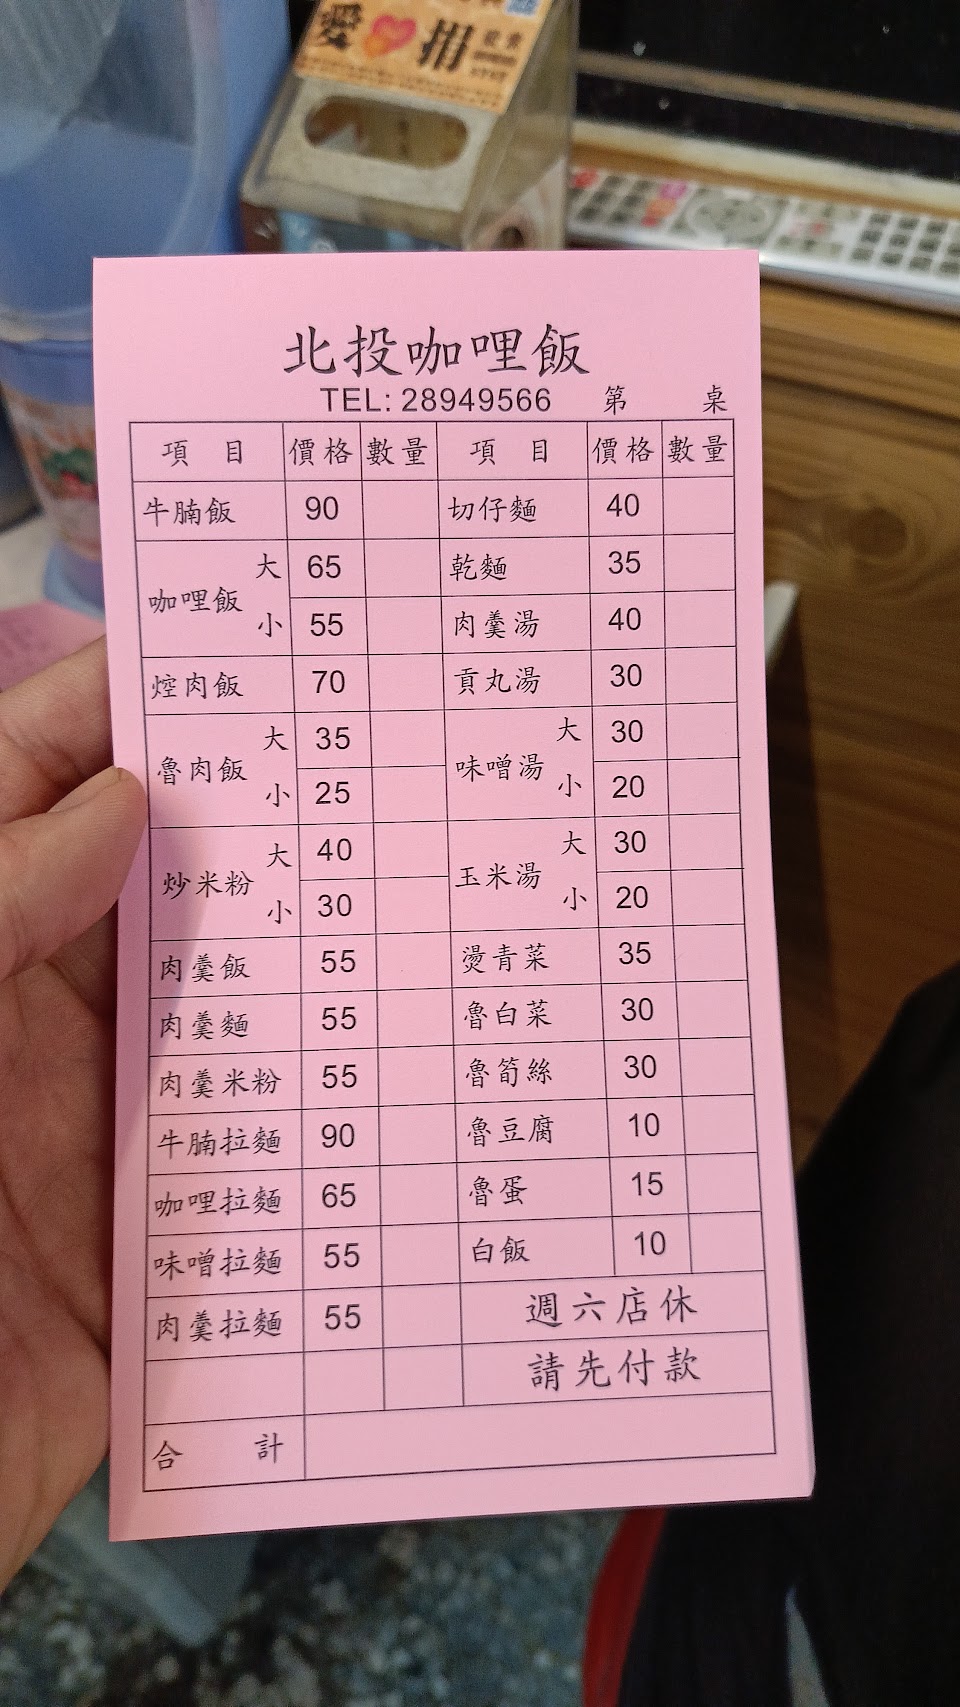 愛 捐
北投咖哩飯
TEL: 28949566 第 桌
項 目 價格 數量 項 目 價格 數量
牛腩飯 90 切仔麵 40
咖哩飯 大 65 乾麵 35
小 55 肉羹湯 40
焢肉飯 70 貢丸湯 30
魯肉飯 大 35 味噌湯 大 30
小 25 小 20
炒米粉 大 40 玉米湯 大 30
小 30 小 20
肉羹飯 55 燙青菜 35
肉羹麵 55 魯白菜 30
肉羹米粉 55 魯筍絲 30
牛腩拉麵 90 魯豆腐 10
咖哩拉麵 65 魯蛋 15
味噌拉麵 55 白飯 10
肉羹拉麵 55 週六店休
請先付款
合 計